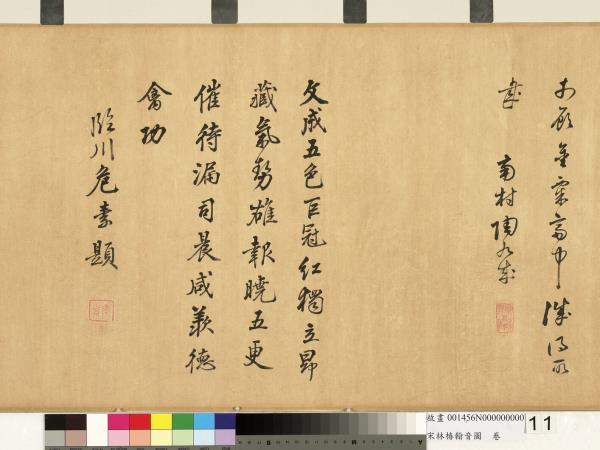 南村陶九成
文成五色巨冠紅獨立昂
藏氣勢雄報曉五更
催待漏司晨咸羨德
禽功
臨川危素題
故畫 001456N000000000
11
宋林椿翰音圖 卷